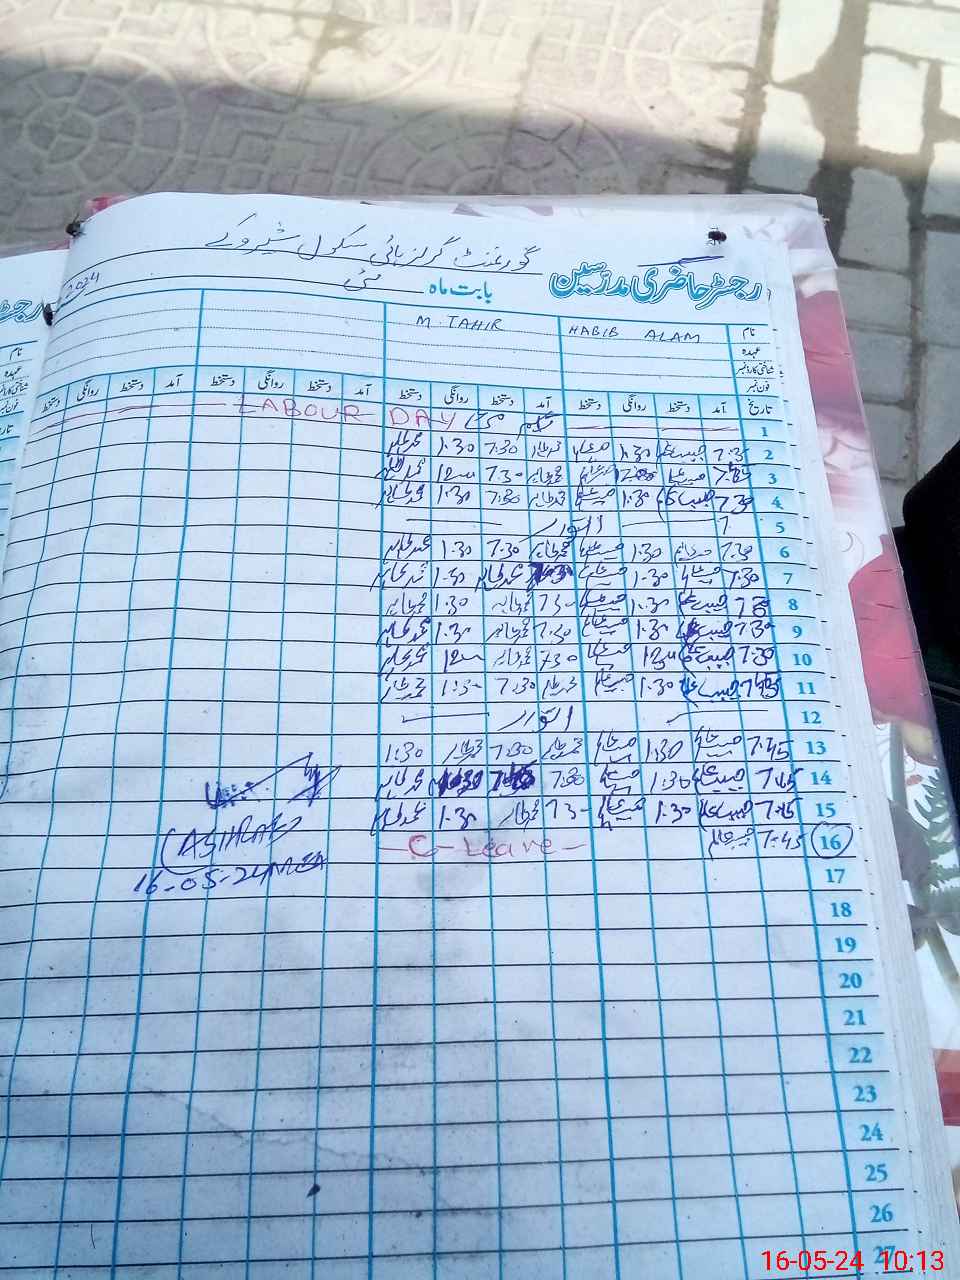 گورنمنٹ گرلز ہائی سکول شیروکے
رجسٹر حاضری مدرسین بابت ماہ مئی 2024
نام HABIB ALAM M. TAHIR
عہدہ
شناختی کارڈ نمبر
فون نمبر
تاریخ آمد دستخط روانگی دستخط آمد دستخط روانگی دستخط آمد دستخط روانگی دستخط آمد دستخط روانگی دستخط
1 یکم مئی LABOUR DAY
2 7:30 حبیب عالم 1:30 حبیب عالم محمد طاہر 7:30 1:30 محمد طاہر
3 حبیب عالم حبیب عالم محمد طاہر 7:30 محمد طاہر
4 7:30 حبیب عالم 1:30 حبیب عالم محمد طاہر 7:30 1:30 محمد طاہر
5 اتوار
6 7:30 حبیب عالم 1:30 حبیب عالم محمد طاہر 7:30 1:30 محمد طاہر
7 7:30 حبیب عالم 1:30 حبیب عالم محمد طاہر 1:30 محمد طاہر
8 7:30 حبیب عالم 1:30 حبیب عالم 7:30 محمد طاہر 1:30 محمد طاہر
9 7:30 حبیب عالم 1:30 حبیب عالم 7:30 محمد طاہر 1:30 محمد طاہر
10 7:30 حبیب عالم حبیب عالم 7:30 محمد طاہر محمد طاہر
11 7:45 حبیب عالم 1:30 حبیب عالم محمد طاہر 7:30 1:30 محمد طاہر
12 اتوار
13 7:45 حبیب عالم 1:30 حبیب عالم محمد طاہر 7:30 محمد طاہر 1:30
14 7:45 حبیب عالم 1:30 حبیب عالم 7:30 محمد طاہر
15 7:45 حبیب عالم 1:30 حبیب عالم 7:30 محمد طاہر 1:30 محمد طاہر
16 7:45 حبیب عالم C- Leave
16-05-24 MEA
17
18
19
20
21
22
23
24
25
26
27
16-05-24 10:13